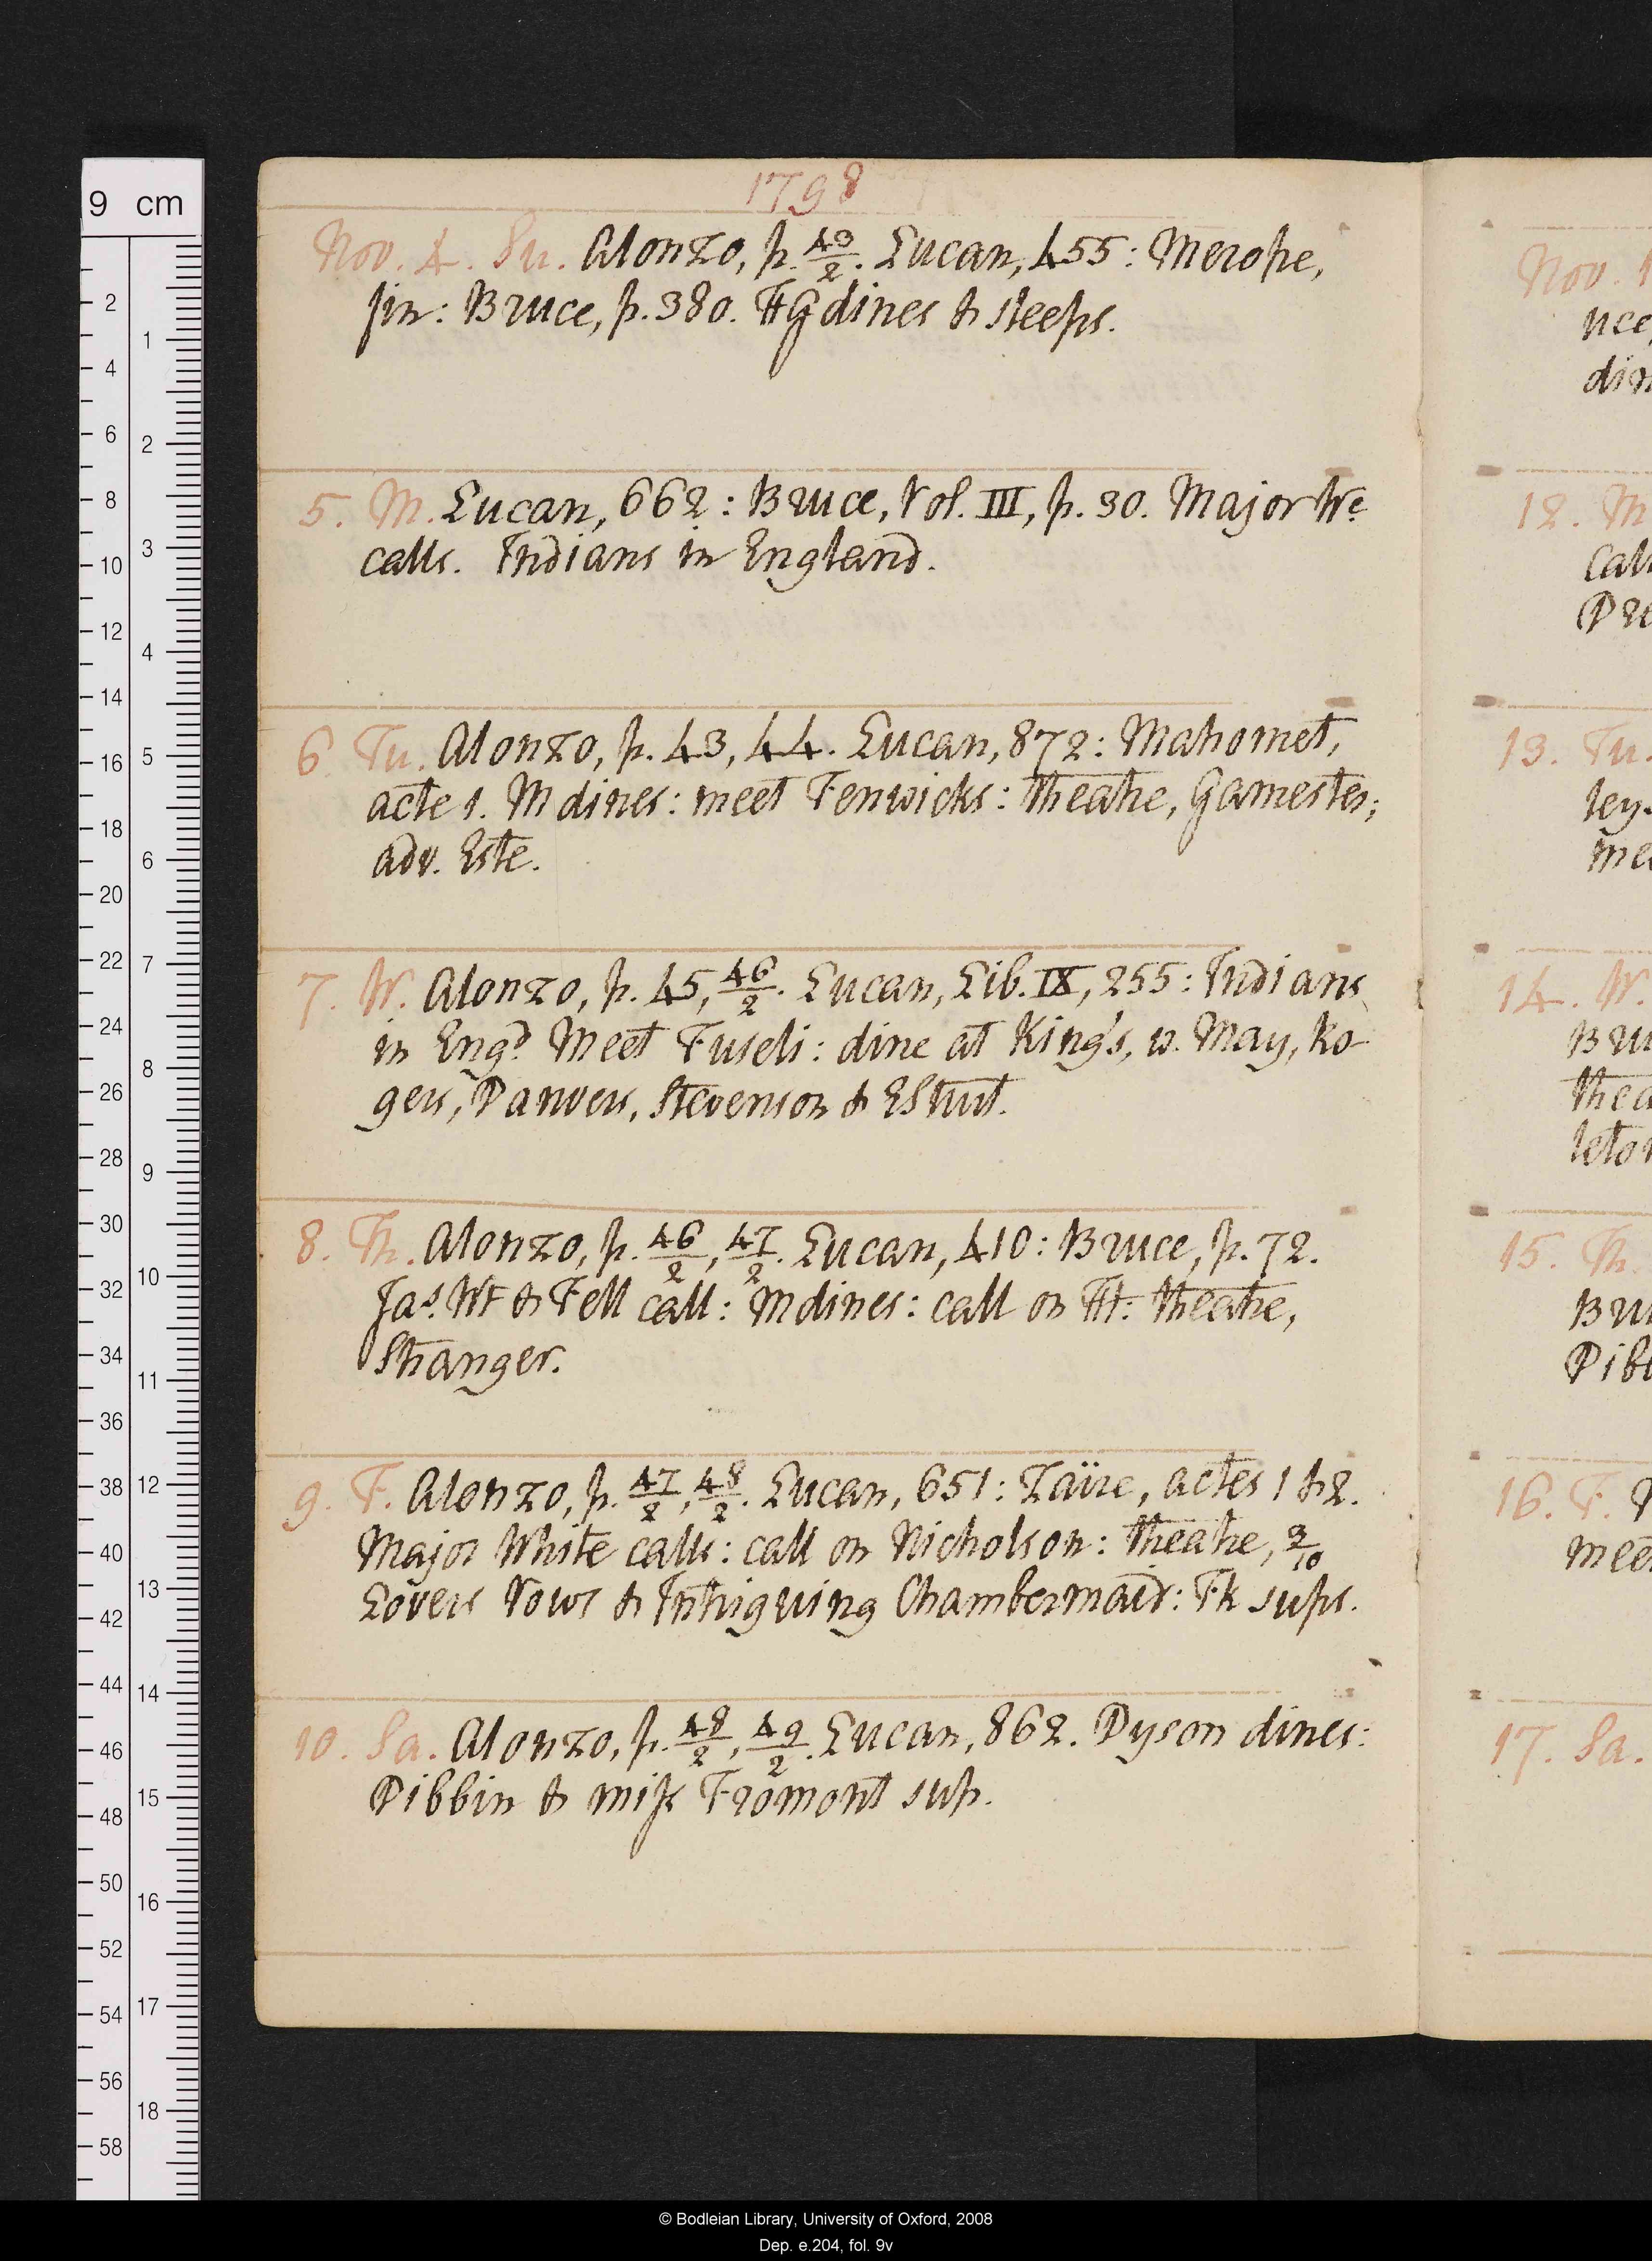 1798
Nov. 4. Su. Alonzo, p. 43/2. Lucan, 455: Merope,
fin: Bruce, p. 380. HG dines & sleeps.
5. M. Lucan, 662: Bruce, Vol. III, p. 30. Major We
calls. Indians in England.
6 Tu. Alonzo, p. 43, 44. Lucan, 872: Mahomet,
acte 1. M dines: meet Fenwicks: theatre, Gamester;
adv. Este.
7. W. Alonzo, p. 45, 46/2. Lucan, Lib. IX, 255: Indians
in Engd Meet Fuseli: dine at King's, w. May, Ro-
gers, Danvers, Stevenson & E Strut.
8. Th. Alonzo, p. 46/2, 47/2. Lucan, 410: Bruce, p. 72.
Jas. Wt & Fell call: M dines: call on Ht: theatre,
Stranger.
9. F. Alonzo, p. 47/2, 48/2. Lucan, 651: Zaïre, actes 1 & 2.
Major White calls: call on Nicholson: theatre, 3/10
Lovers Vows & Intriguing Chambermaid: Fk sups.
10. Sa. Alonzo, p. 48/2, 49/2. Lucan, 862. Dyson dines:
Dibbin & miss Fromont sup.
Nov. 1
nce,
din
12. M
Call
Pre
13. Tu.
ley.
me
14. W.
Bru
thea
leton
15. Th.
Bru
Dibb
16. F.
meet
17. Sa.
9 cm
2
4
6
8
10
12
14
16
18
20
22
24
26
28
30
32
34
36
38
40
42
44
46
48
50
52
54
56
58
1
2
3
4
5
6
7
8
9
10
11
12
13
14
15
16
17
18
© Bodleian Library, University of Oxford, 2008
Dep. e.204, fol. 9v